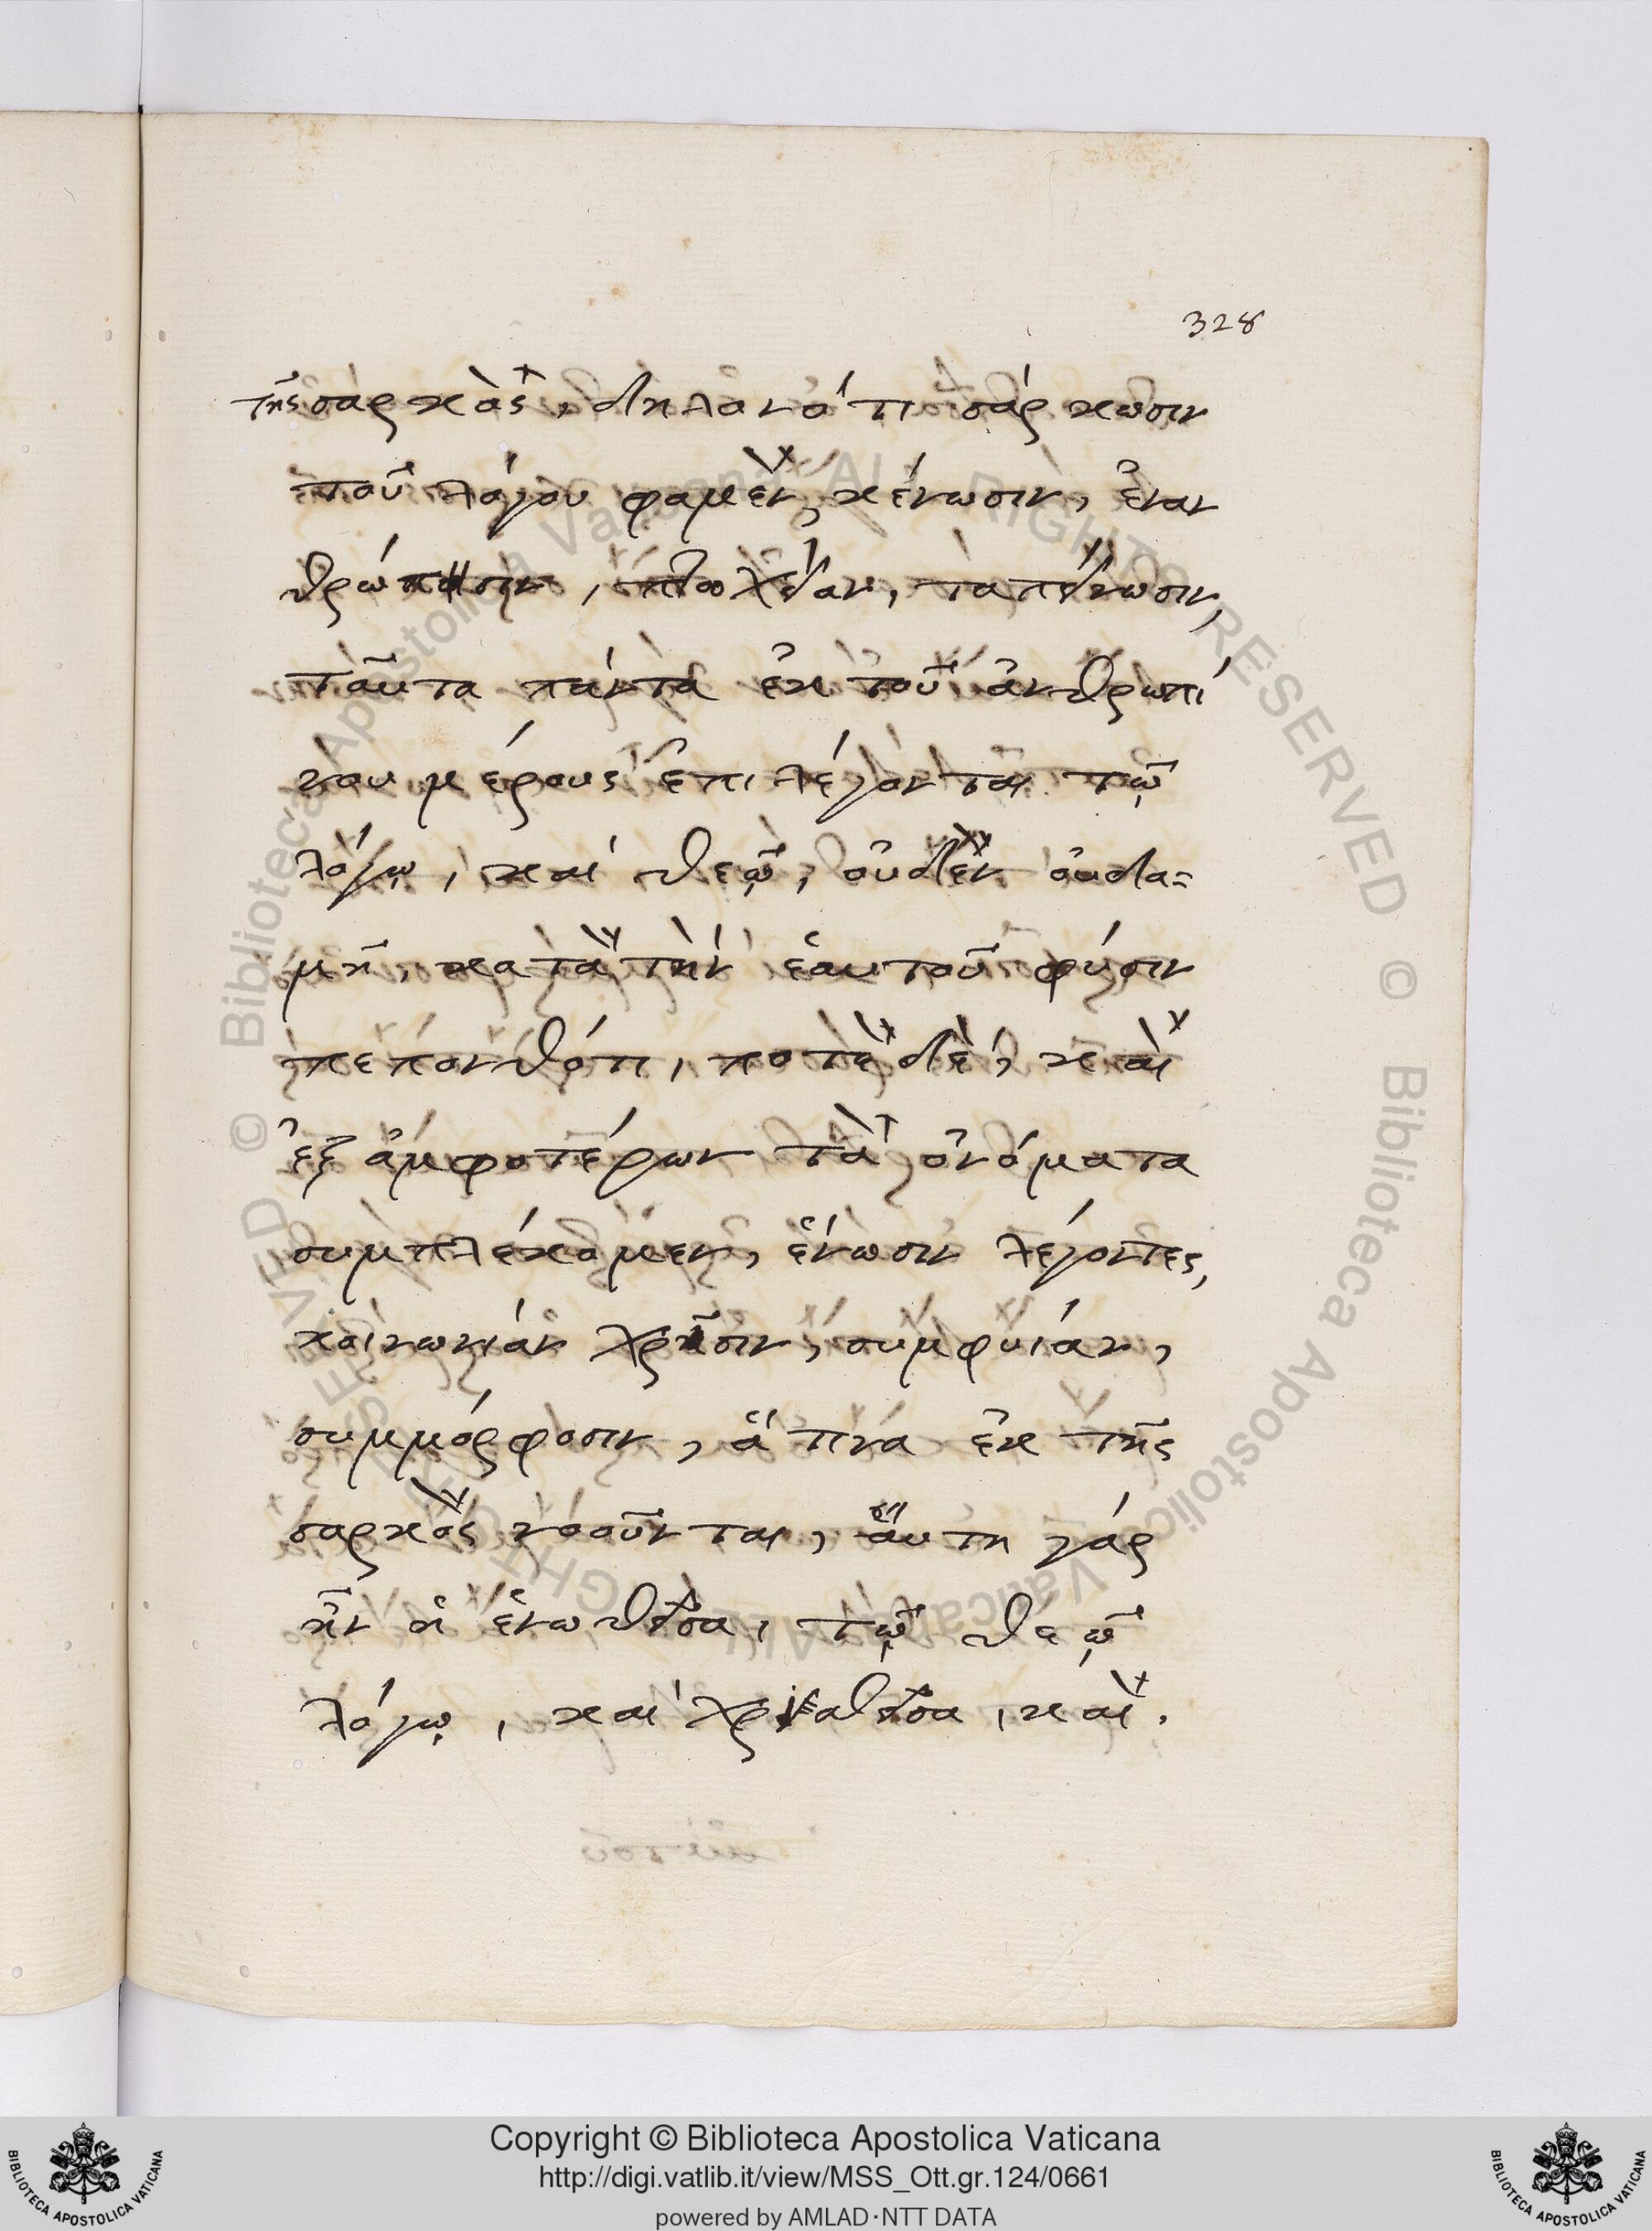 328
τῆς σαρκὸς, δηλονότι σάρκωσιν
τοῦ λόγου φαμὲν, κένωσιν, ἐναν
θρώπησιν, πτωχείαν, ταπείνωσιν,
ταῦτα πάντα ἐκ τοῦ ἀνθρωπί
νου μέρους ἐπιλέγονται τῷ
λόγῳ, καὶ θεῷ, οὐδὲν οὐδα=
μῆ, κατὰ τὴν ἑαυτοῦ φύσιν
πεπονθότι, ποτὲ δὲ, καὶ
ἐξ ἀμφοτέρων τὰ ὀνόματα
συμπλέκομεν, ἕνωσιν λέγοντες,
κοινωνίαν χρῖσιν, συμφυίαν,
συμμόρφοσιν, ἅ τινα ἐκ τῆς
σαρκὸς νοοῦνται, αὕτη γάρ
ἦν ἡ ἑνωθεῖσα, τῷ θεῷ
λόγῳ, καί χρισθεῖσα, καὶ.
Copyright © Biblioteca Apostolica Vaticana
http://digi.vatlib.it/view/MSS_Ott.gr.124/0661
powered by AMLAD·NTT DATA
BIBLIOTECA APOSTOLICA VATICANA
BIBLIOTECA APOSTOLICA VATICANA